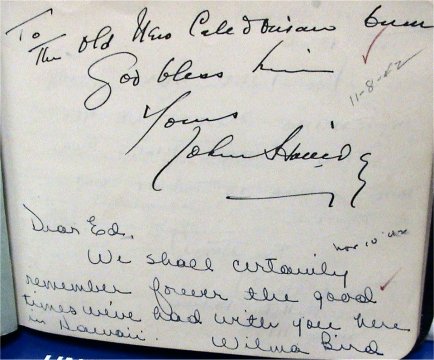 To
The Old New Caledonian bum
God bless him
11-8-42
Yours
John
Dear Ed.
Nov 10 '42
We shall certainly
remember forever the good
times we've had with you here
in Hawaii. Wilma Bird